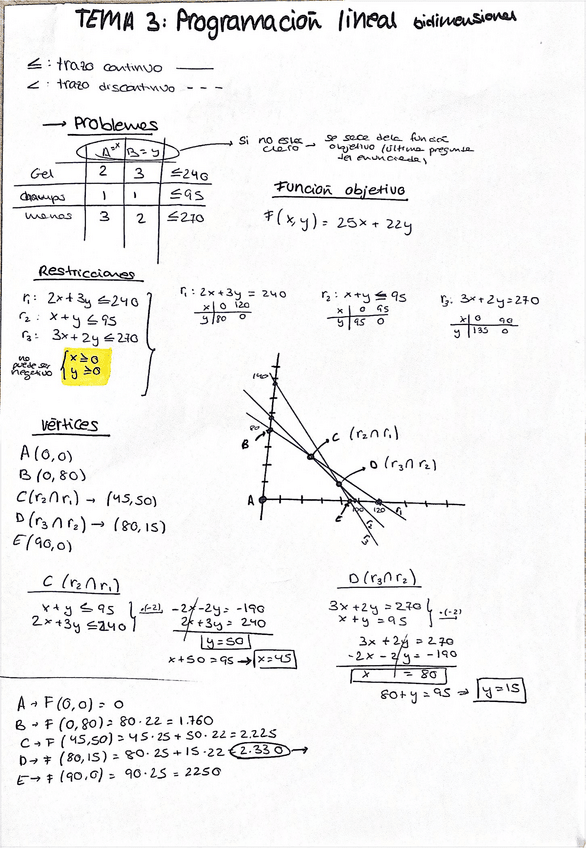 TEMA 3: Programación lineal bidimensional
≤ : trazo continuo ——
< : trazo discontinuo - - -
→ Problemas
A=x B=y → Si no esta claro → se saca dela función objetivo (última pregunta del enunciado)
Gel 2 3 ≤240
champú 1 1 ≤95
manos 3 2 ≤270
Función objetivo
F(x,y) = 25x + 22y
Restricciones
r₁: 2x+3y ≤240
r₂: x+y ≤95
r₃: 3x+2y ≤270
no puede ser negativo { x≥0
y ≥0
r₁: 2x+3y = 240
x | 0 120
y | 80 0
r₂: x+y ≤ 95
x | 0 95
y | 95 0
r₃: 3x+2y=270
x | 0 90
y | 135 0
140
80
B
A
C (r₂∩r₁)
D (r₃∩r₂)
E
100
120
r₁
r₂
r₃
vértices
A(0,0)
B(0,80)
C(r₂∩r₁) → (45,50)
D(r₃∩r₂) → (80,15)
E(90,0)
C (r₂∩r₁)
x+y ≤ 95 } ·(-2) -2x-2y= -190
2x+3y ≤240 2x+3y= 240
y=50
x+50=95 → x=45
D(r₃∩r₂)
3x+2y=270 } ·(-2)
x+y=95
3x+2y=270
-2x-2y=-190
x = 80
80+y=95 → y=15
A → F(0,0) = 0
B → F(0,80) = 80·22 = 1.760
C → F(45,50)=45·25+50·22=2.225
D → F(80,15)= 80·25+15·22=2.330 →
E → F(90,0)= 90·25 = 2250